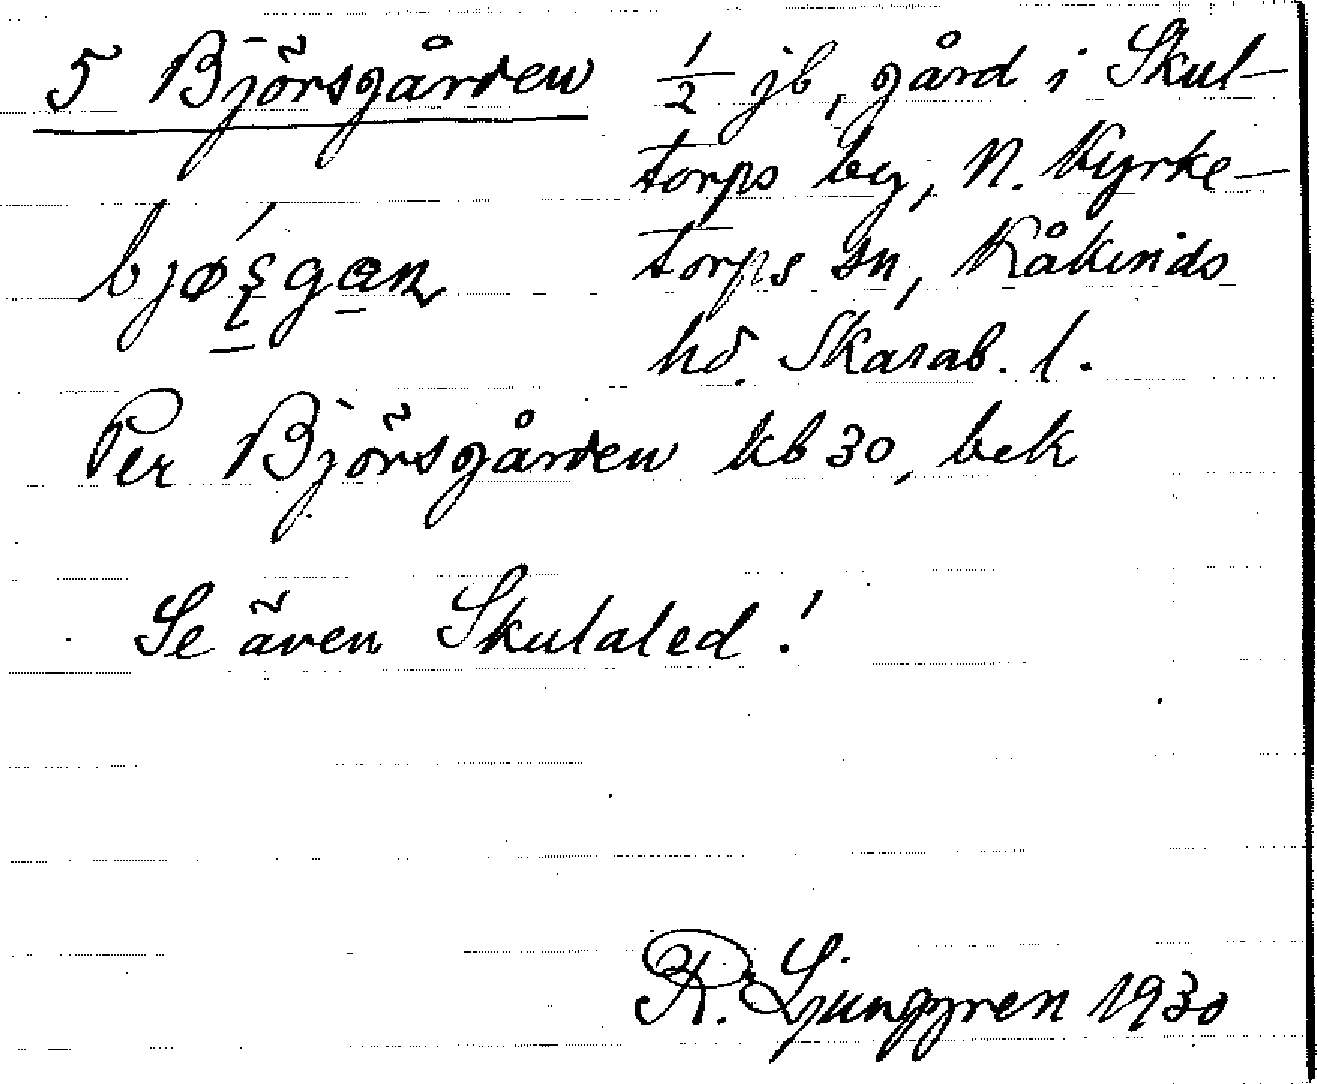 5 Björsgården
½ jb, gård i Skul-
torps by, N. Kyrke-
torps sn, Kåkinds
hd. Skarab. l.
Per Björsgården kb 30, bek
Se även Skulaled!
R. Ljunggren 1930